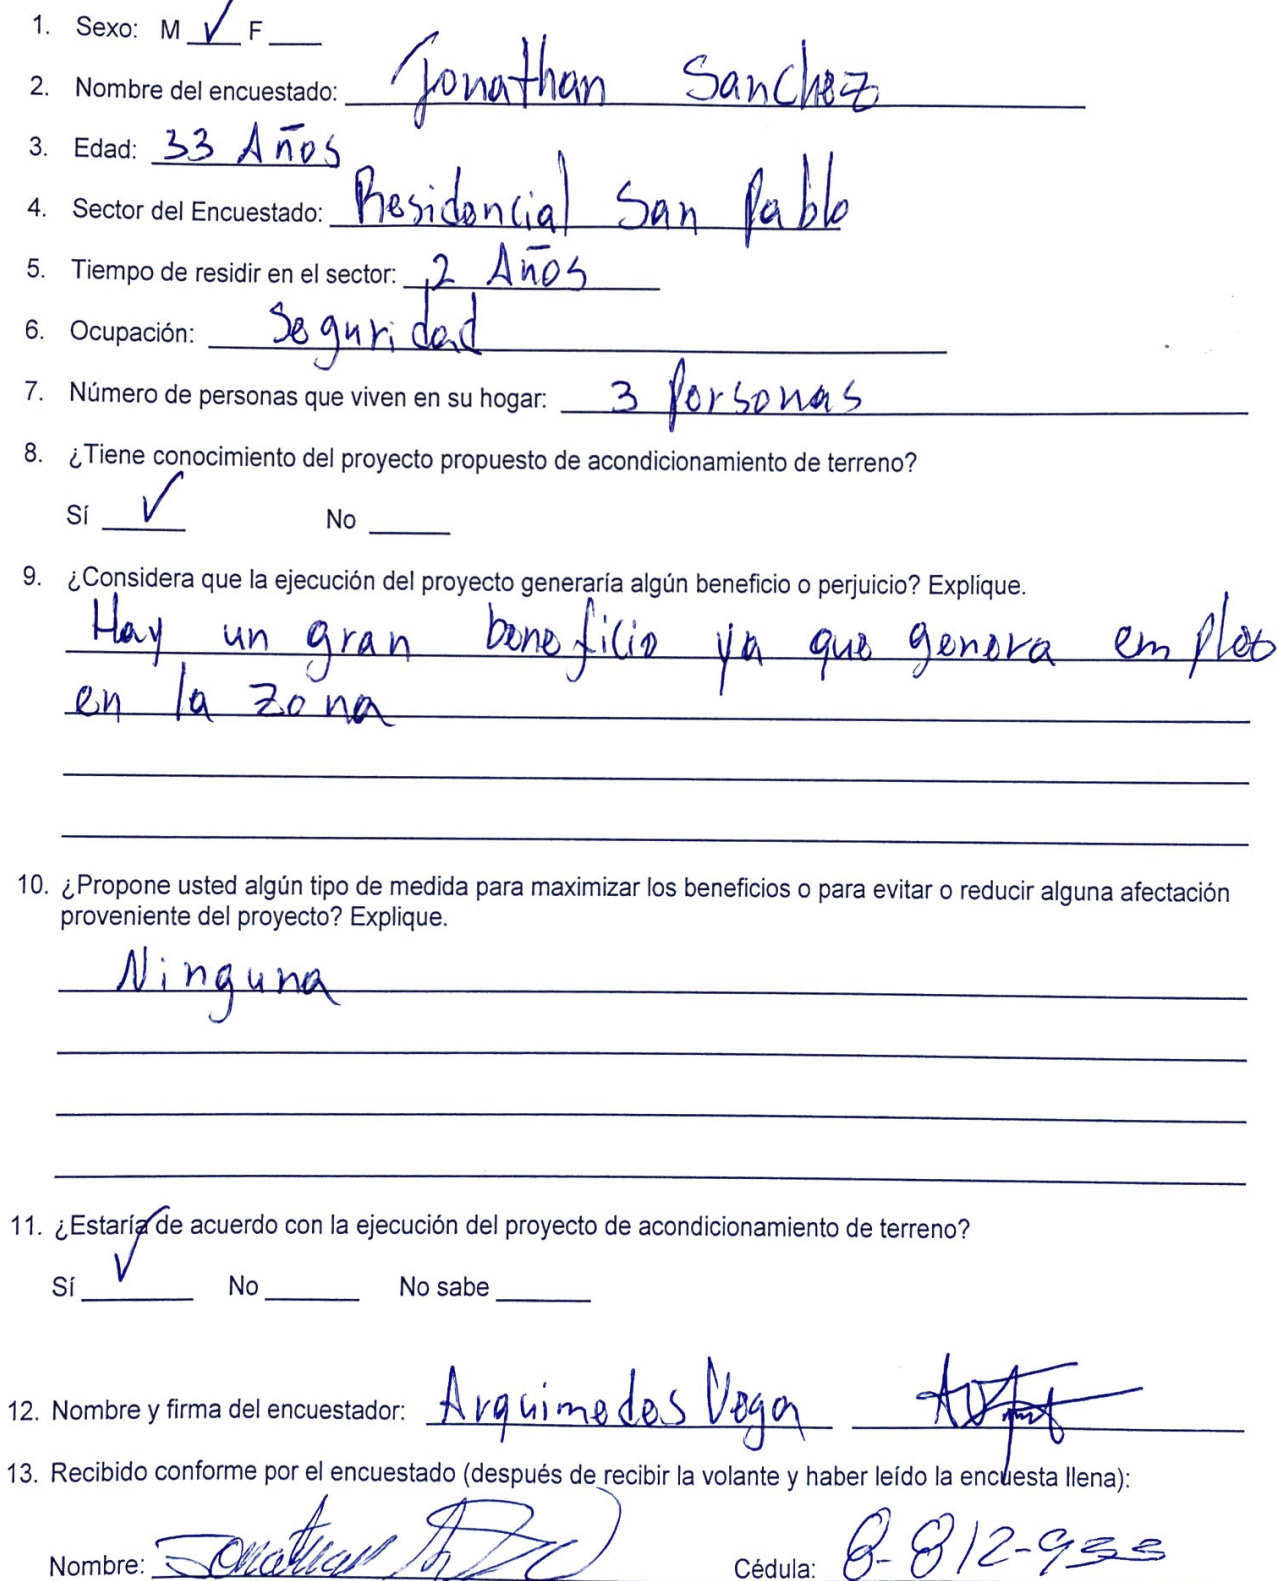 1. Sexo: M ✓ F ____
2. Nombre del encuestado: Jonathan Sanchez
3. Edad: 33 Años
4. Sector del Encuestado: Residencial San Pablo
5. Tiempo de residir en el sector: 2 Años
6. Ocupación: Seguridad
7. Número de personas que viven en su hogar: 3 Personas
8. ¿Tiene conocimiento del proyecto propuesto de acondicionamiento de terreno?
Sí ✓ No ____
9. ¿Considera que la ejecución del proyecto generaría algún beneficio o perjuicio? Explique.
Hay un gran beneficio ya que genera empleo
en la zona
10. ¿Propone usted algún tipo de medida para maximizar los beneficios o para evitar o reducir alguna afectación
proveniente del proyecto? Explique.
Ninguna
11. ¿Estaría de acuerdo con la ejecución del proyecto de acondicionamiento de terreno?
Sí ✓ No ____ No sabe ____
12. Nombre y firma del encuestador: Arquimedes Vega
13. Recibido conforme por el encuestado (después de recibir la volante y haber leído la encuesta llena):
Nombre: Jonathan Cédula: 8-812-933